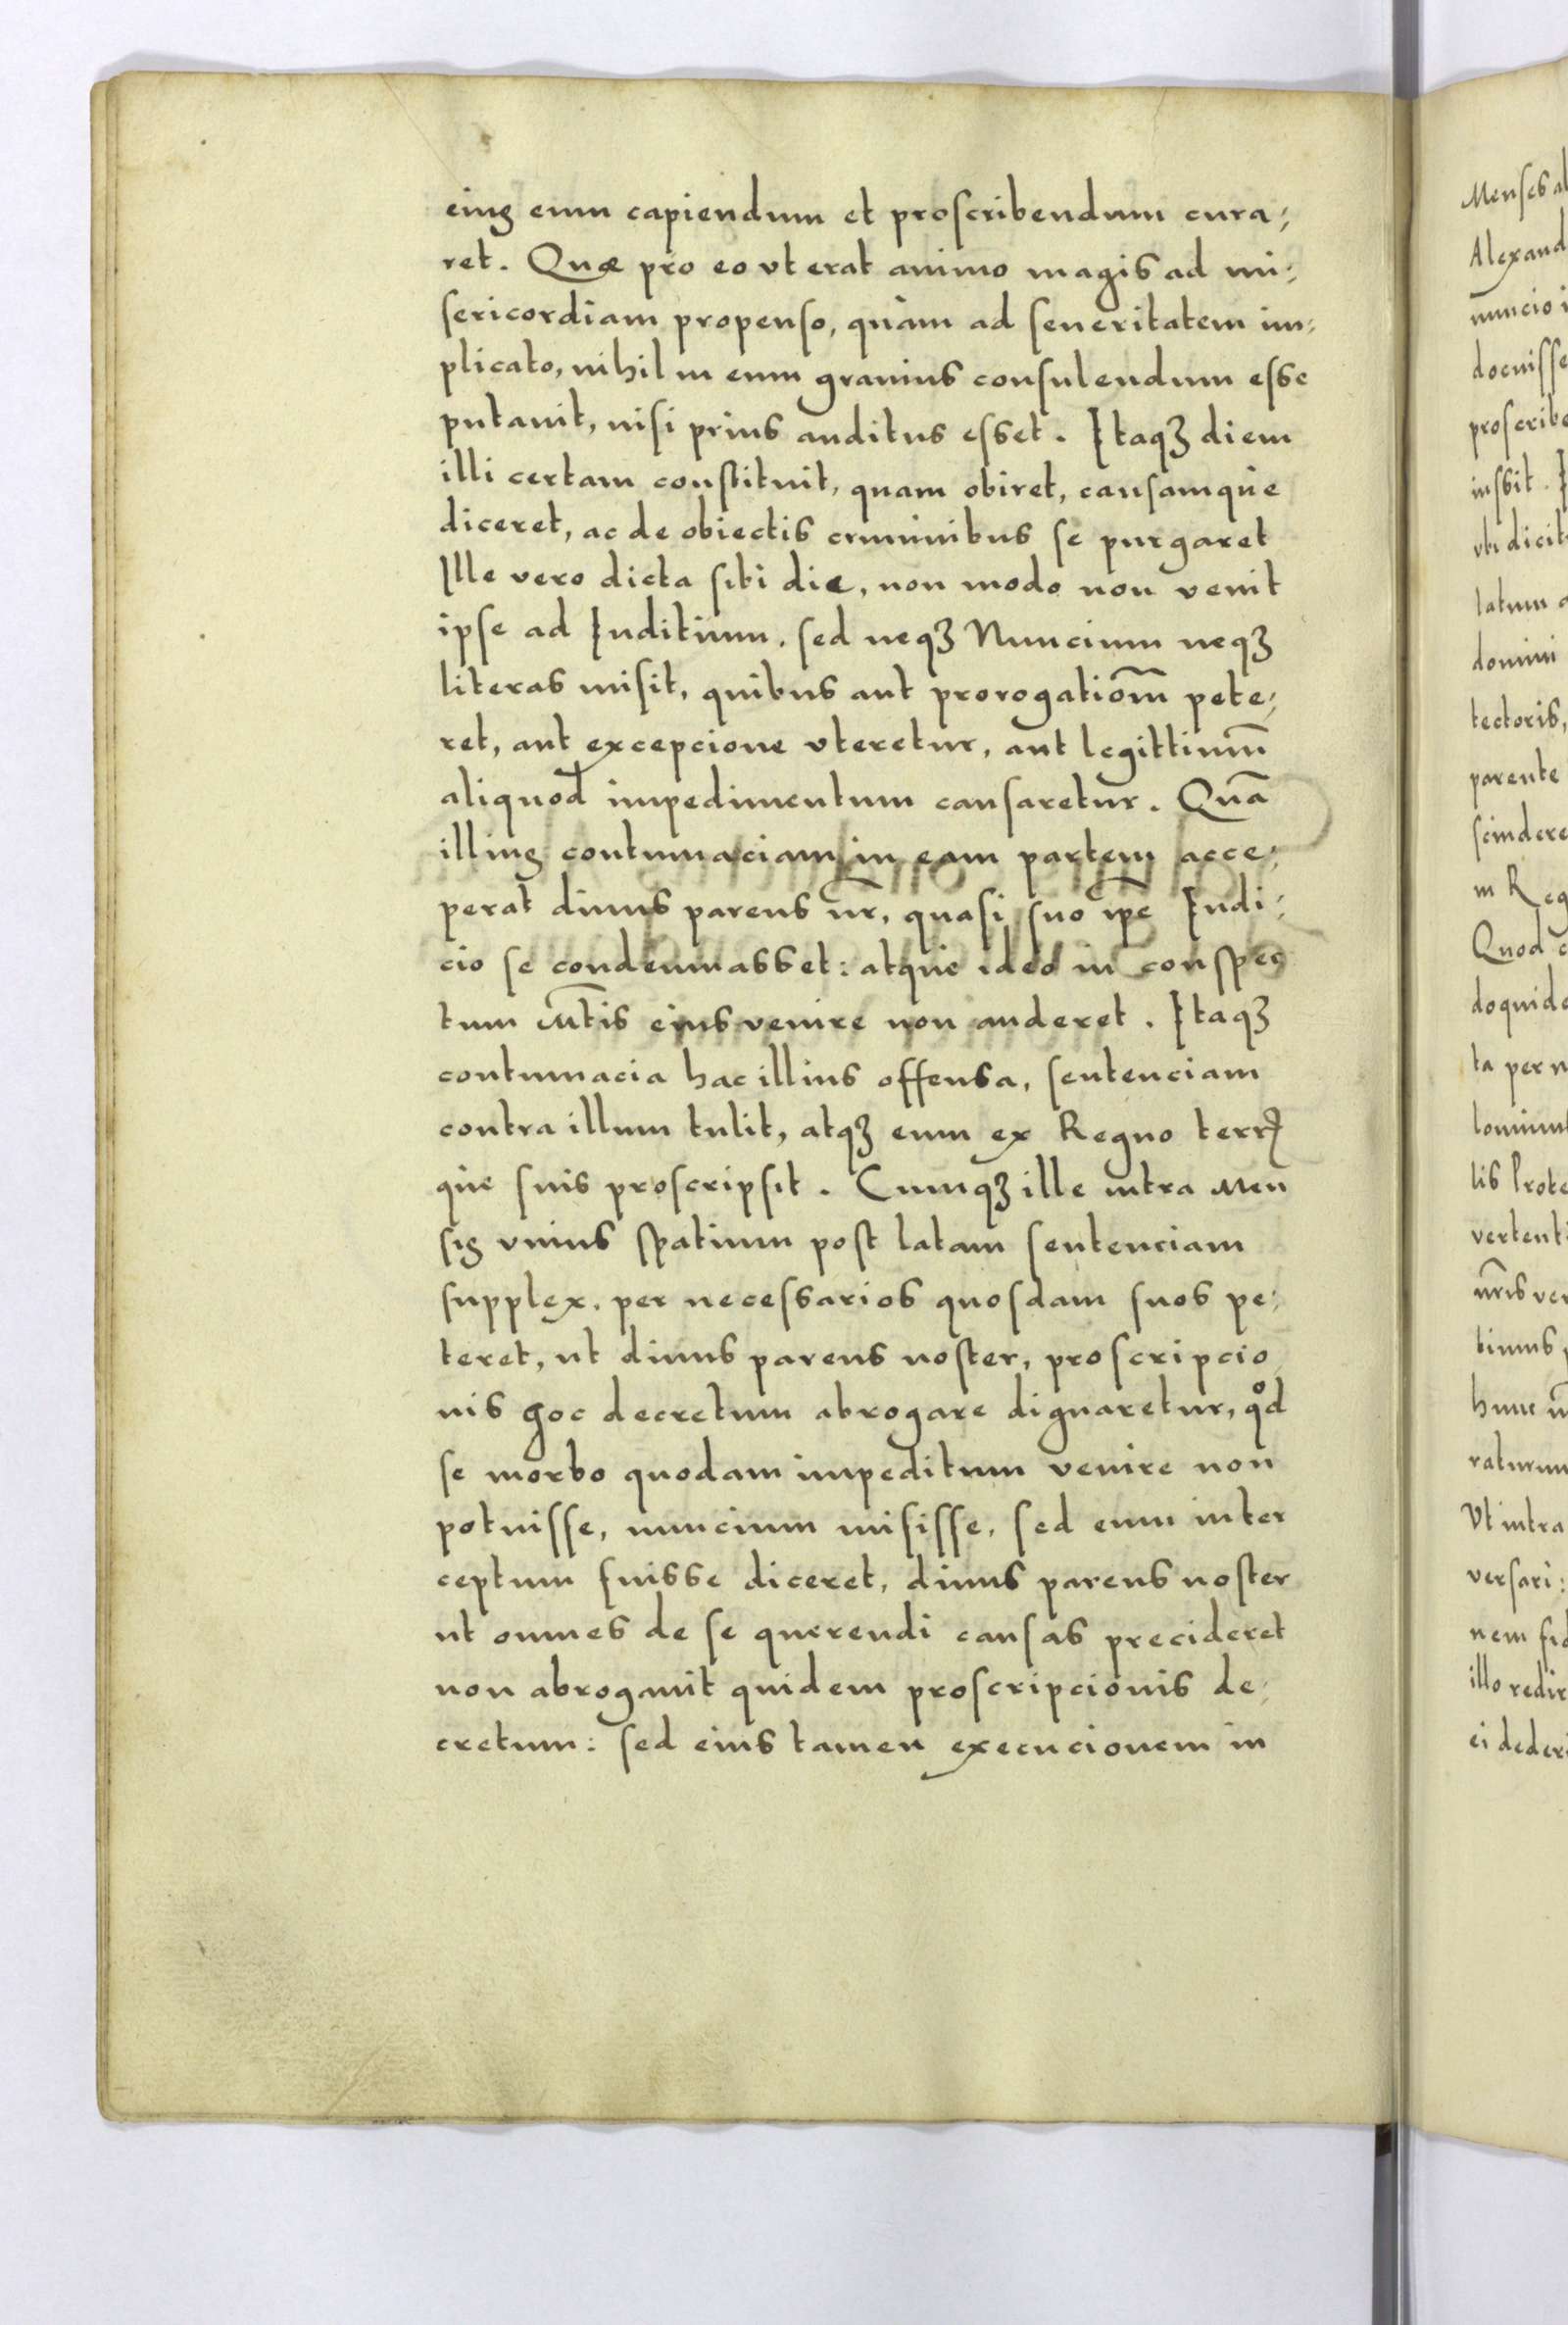 eiuꝰ eum capiendum et proscribendum cura⸗
ret. Quæ pro eo vt erat animo magis ad mi⸗
sericordiam propenso, quàm ad seueritatem im⸗
plicato, nihil in eum grauius consulendum esse
putauit, nisi prius auditus esset. Itaqꝫ diem
illi certam constituit, quam obiret, causamque
diceret, ac de obiectis criminibus se purgaret
Ille vero dicta sibi die, non modo non venit
ipse ad Iuditium, sed neqꝫ Nuncium neqꝫ
literas misit, quibus aut prorogatiōm pete⸗
ret, aut excepcione vteretur, aut legittimū
aliquod impedimentum causaretur. Quā
illiuꝰ contumaciam in eam partem acce⸗
perat diuus parens nr̄, quasi suo ip̄e Iudi⸗
cio se condemnasset: atque ideo in conspec
tum M̄tis eius venire non auderet. Itaqꝫ
contumacia hac illius offensa, sentenciam
contra illum tulit, atqꝫ eum ex Regno terrꝭ
que suis proscripsit. Cumqꝫ ille intra Men
siꝰ vnius spatium post latam sentenciam
supplex, per necessarios quosdam suos pe⸗
teret, ut diuus parens noster, proscripcio
nis hoc decretum abrogare dignaretur, qd̊
se morbo quodam impeditum venire non
potuisse, nuncium misisse, sed eum inter
ceptum fuisse diceret, diuus parens noster
ut omnes de se querendi causas precideret
non abrogauit quidem proscripcionis de⸗
cretum: sed eius tamen execucionem in
Menses
Alexand
nuncio
docuisse
proscribe
iussit.
vti dicit
latum
domini
tectoris,
parente
scindere
in Reg
Quod
doquide
ta per
lis Prote
vertent
nr̄is
hunc
raturum
Vt intra
versari:
nem
illo redir
ei deder